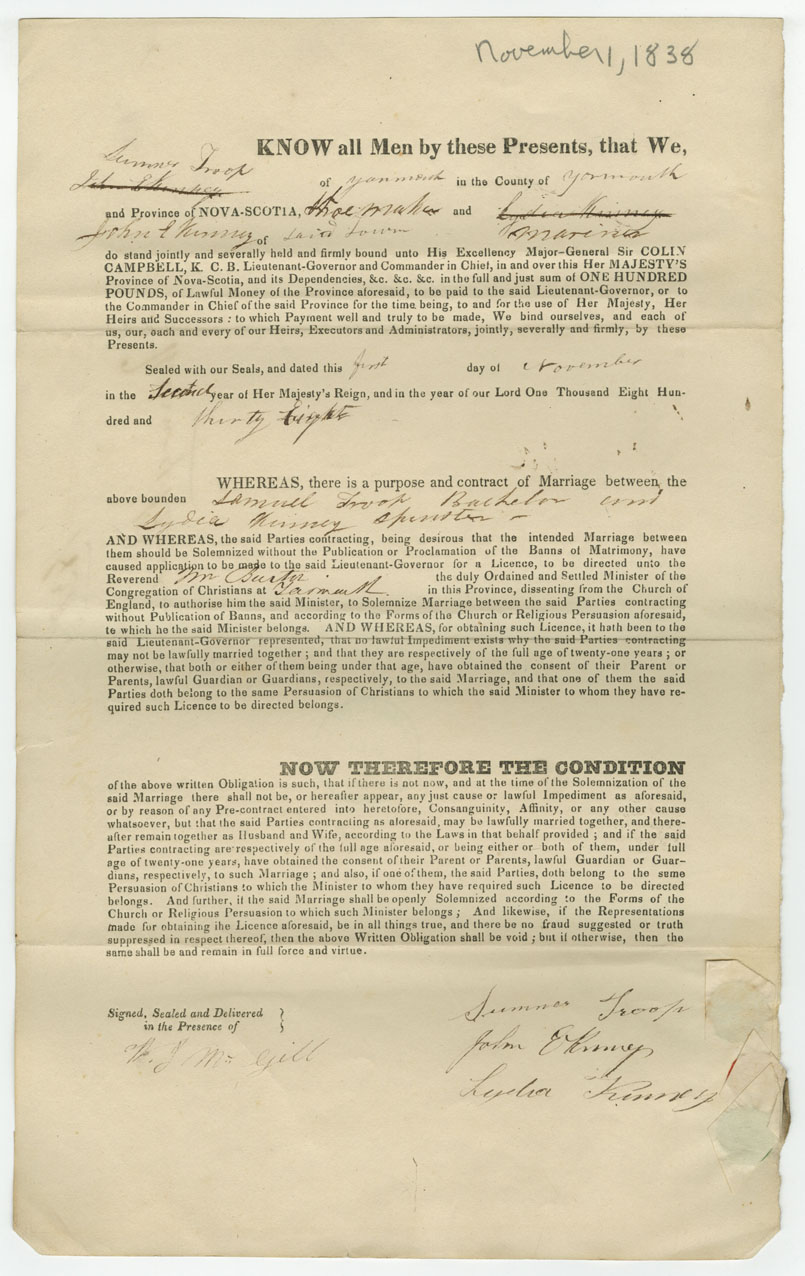 November 1, 1838
KNOW all Men by these Presents, that We,
Sumner Troop
John E Kinney of Yarmouth in the County of Yarmouth
and Province of NOVA-SCOTIA, Shoe maker and Lydia Kinney
John E Kinney of said Town marine
do stand jointly and severally held and firmly bound unto His Excellency Major-General Sir COLIN
CAMPBELL, K. C. B. Lieutenant-Governor and Commander in Chief, in and over this Her MAJESTY'S
Province of Nova-Scotia, and its Dependencies, &c. &c. &c. in the full and just sum of ONE HUNDRED
POUNDS, of Lawful Money of the Province aforesaid, to be paid to the said Lieutenant-Governor, or to
the Commander in Chief of the said Province for the time being, to and for the use of Her Majesty, Her
Heirs and Successors : to which Payment well and truly to be made, We bind ourselves, and each of
us, our, each and every of our Heirs, Executors and Administrators, jointly, severally and firmly, by these
Presents.
Sealed with our Seals, and dated this first day of November
in the Second year of Her Majesty's Reign, and in the year of our Lord One Thousand Eight Hun-
dred and thirty Eight
WHEREAS, there is a purpose and contract of Marriage between the
above bounden Samuel Troop Bachelor and
Lydia Kinney Spinster
AND WHEREAS, the said Parties contracting, being desirous that the intended Marriage between
them should be Solemnized without the Publication or Proclamation of the Banns of Matrimony, have
caused application to be made to the said Lieutenant-Governor for a Licence, to be directed unto the
Reverend Wm Burton the duly Ordained and Settled Minister of the
Congregation of Christians at Yarmouth in this Province, dissenting from the Church of
England, to authorise him the said Minister, to Solemnize Marriage between the said Parties contracting
without Publication of Banns, and according to the Forms of the Church or Religious Persuasion aforesaid,
to which he the said Minister belongs. AND WHEREAS, for obtaining such Licence, it hath been to the
said Lieutenant-Governor represented, that no lawful Impediment exists why the said Parties contracting
may not be lawfully married together ; and that they are respectively of the full age of twenty-one years ; or
otherwise, that both or either of them being under that age, have obtained the consent of their Parent or
Parents, lawful Guardian or Guardians, respectively, to the said Marriage, and that one of them the said
Parties doth belong to the same Persuasion of Christians to which the said Minister to whom they have re-
quired such Licence to be directed belongs.
NOW THEREFORE THE CONDITION
of the above written Obligation is such, that if there is not now, and at the time of the Solemnization of the
said Marriage there shall not be, or hereafter appear, any just cause or lawful Impediment as aforesaid,
or by reason of any Pre-contract entered into heretofore, Consanguinity, Affinity, or any other cause
whatsoever, but that the said Parties contracting as aforesaid, may be lawfully married together, and there-
after remain together as Husband and Wife, according to the Laws in that behalf provided ; and if the said
Parties contracting are respectively of the full age aforesaid, or being either or both of them, under full
age of twenty-one years, have obtained the consent of their Parent or Parents, lawful Guardian or Guar-
dians, respectively, to such Marriage ; and also, if one of them, the said Parties, doth belong to the same
Persuasion of Christians to which the Minister to whom they have required such Licence to be directed
belongs. And further, if the said Marriage shall be openly Solemnized according to the Forms of the
Church or Religious Persuasion to which such Minister belongs ; And likewise, if the Representations
made for obtaining the Licence aforesaid, be in all things true, and there be no fraud suggested or truth
suppressed in respect thereof, then the above Written Obligation shall be void ; but if otherwise, then the
same shall be and remain in full force and virtue.
Signed, Sealed and Delivered
in the Presence of
Sumner Troop
John E Kinney
Lydia Kinney